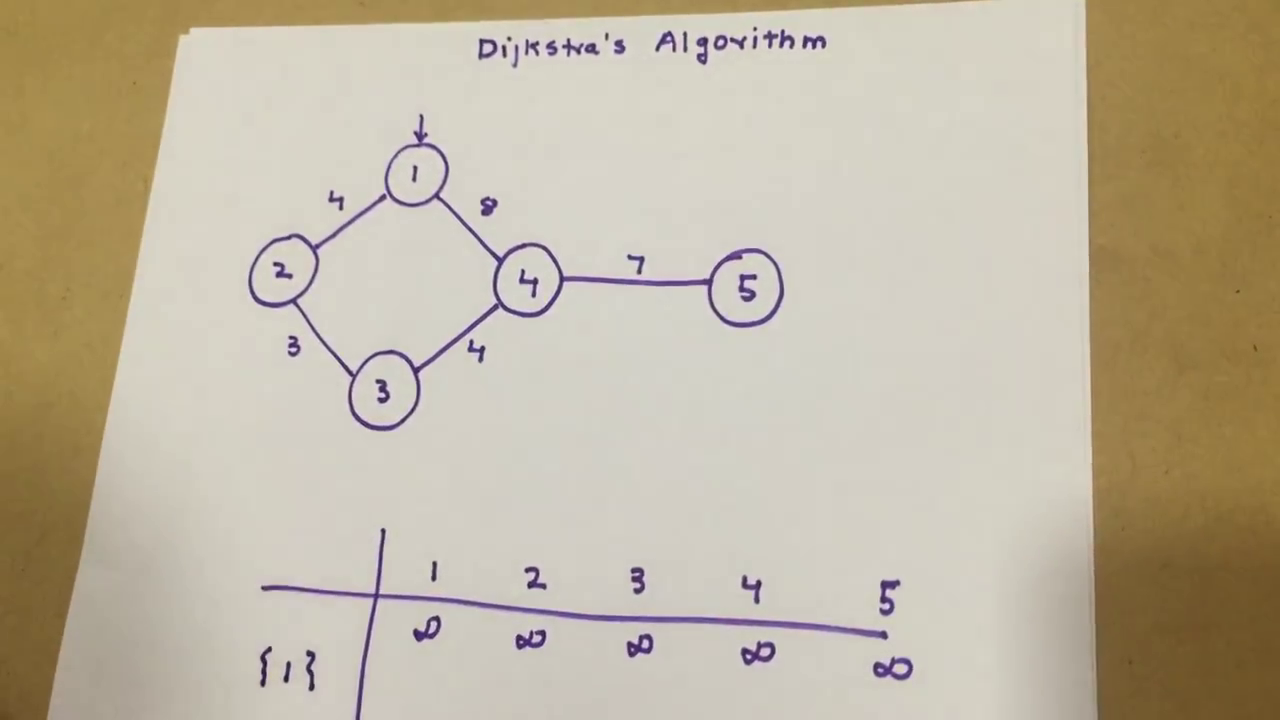 Dijkstra's Algorithm
1
4 8
2
4 7 5
3 4
3
1 2 3 4 5
∞ ∞ ∞ ∞ ∞
{1}